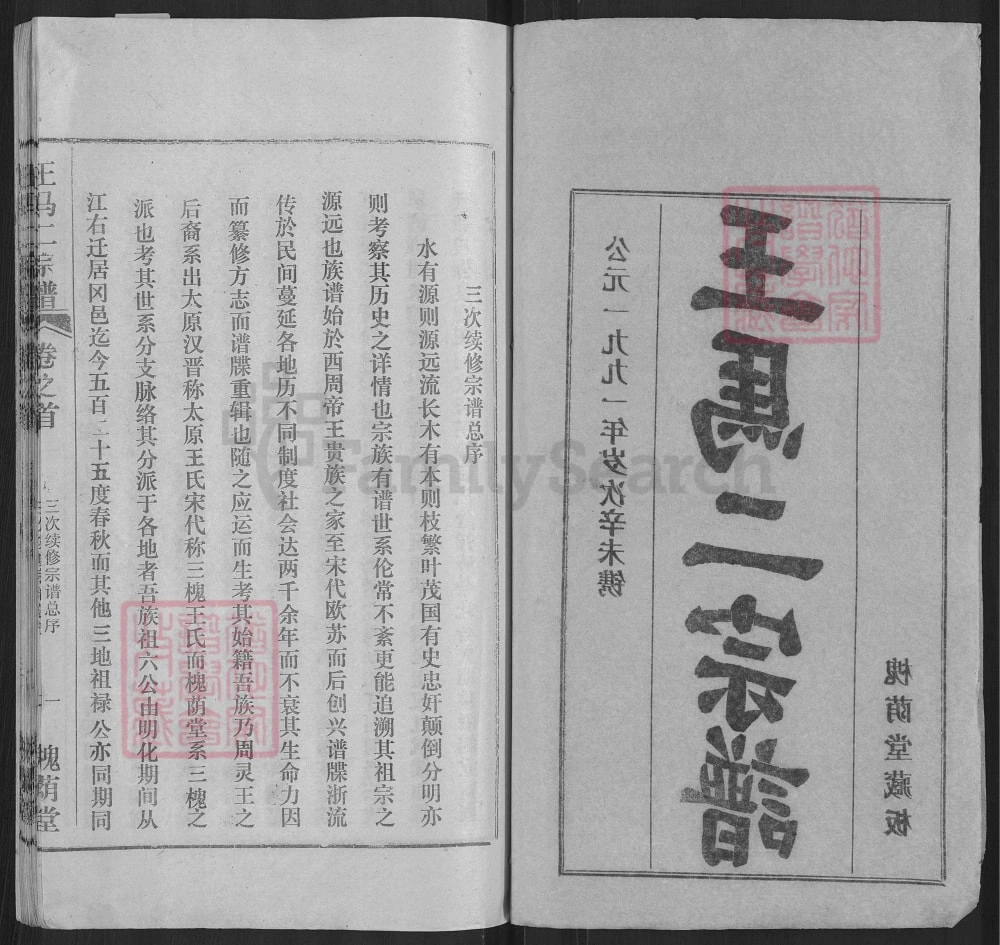 王馬二宗譜
公元一九九一年岁次辛未镌
槐荫堂藏板
三次续修宗谱总序
水有源则源远流长木有本则枝繁叶茂国有史忠奸颠倒分明亦
则考察其历史之详情也宗族有谱世系伦常不紊更能追溯其祖宗之
源远也族谱始於西周帝王贵族之家至宋代欧苏而后创兴谱牒浙流
传於民间蔓延各地历不同制度社会达两千余年而不衰其生命力因
而纂修方志而谱牒重辑也随之应运而生考其始籍吾族乃周灵王之
后裔系出太原汉晋称太原王氏宋代称三槐王氏而槐荫堂系三槐之
派也考其世系分支脉络其分派于各地者吾族祖六公由明化期间从
江右迁居冈邑迄今五百二十五度春秋而其他三地祖禄公亦同期同
王马二宗谱
卷之首
三次续修宗谱总序
一
槐荫堂
FamilySearch